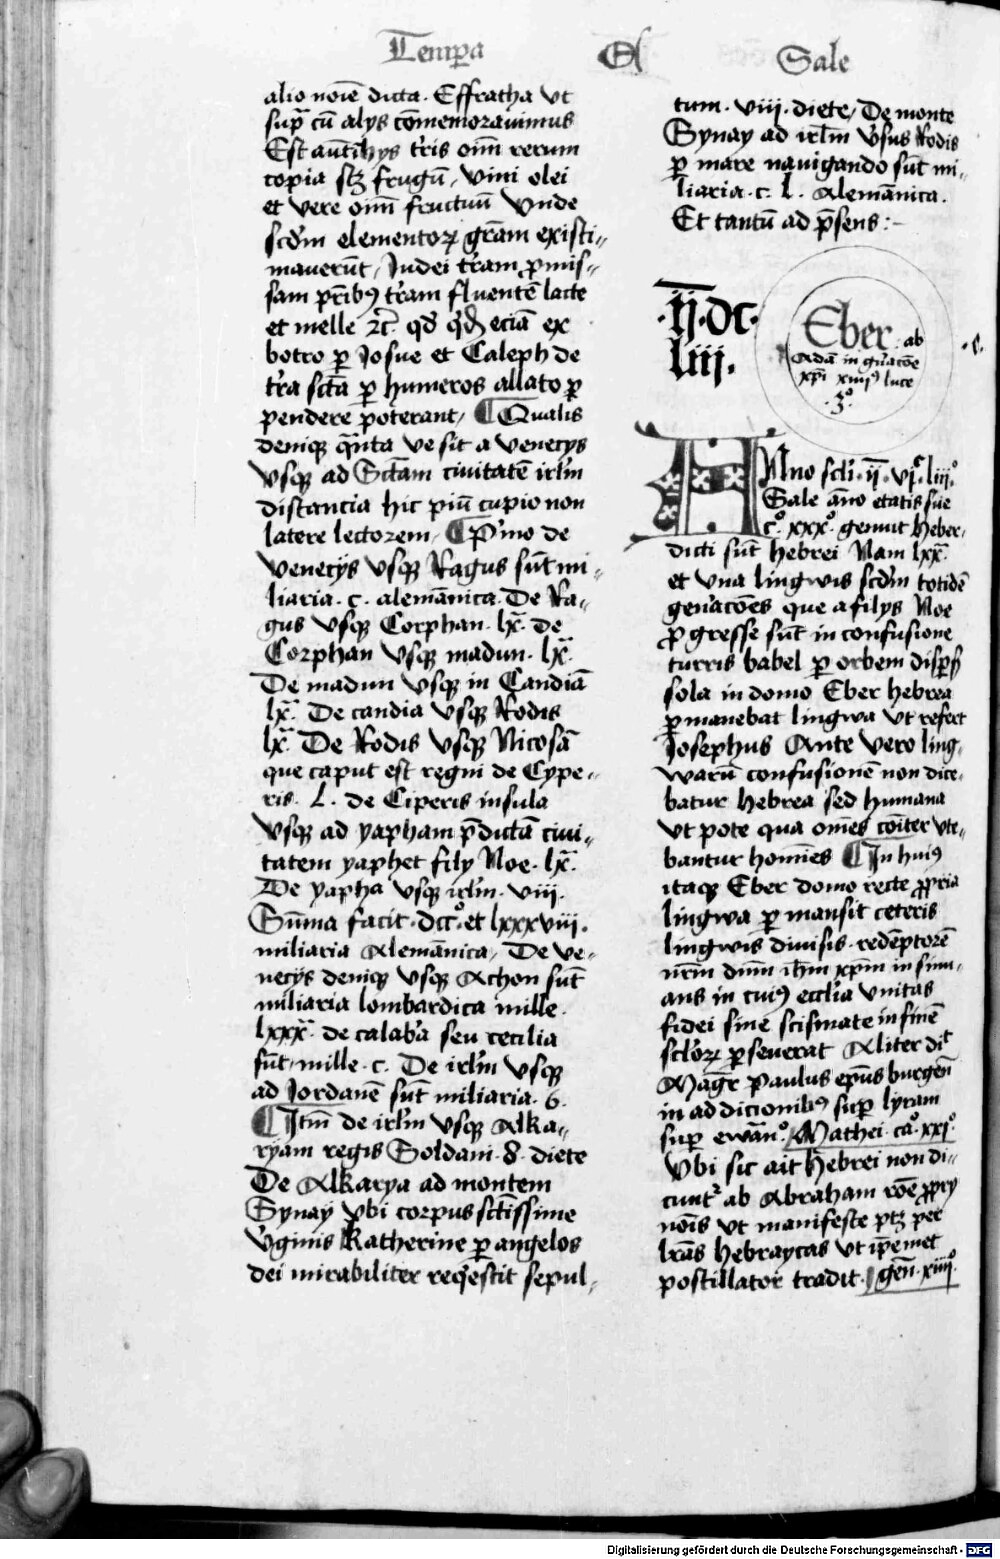 Tempa Et Sale
alio noīe dicta. Effratha Vt
sup̄ cū alys cōmemorauimus
Est aūt hys tris oīm rerum
copia scz frugū, vini olei
et vere oīm fructuū Vnde
scdm elementoꝝ grām existi-
mauerūt, Judei trām p̄mis-
sam prībꝰ trām fluentē lacte
et melle ⁊c̄. qd qd eciā ex
botro ꝑ Josue et Caleph de
tra scā ꝑ humeros allato ꝑ
pendere poterant, ¶ Qualis
deniqꝫ q̄nta ve sit a Venecys
Vsqꝫ ad Sctam ciuitatē irlm
distancia hic piū cupio non
latere lectorem, ¶ P'mo de
Venecys Vsqꝫ Ragus sūt mi-
liaria. c. alemānica. De Ra-
gus Vsqꝫ Corphan. lx. de
Corphan Vsqꝫ madun. lx.
De madun Vsqꝫ in Candiā
lx. De candia Vsqꝫ Rodis
lx. De Rodis Vsqꝫ Nicosā
que caput est regni de Cype-
ris. L. de Ciperis insula
Vsqꝫ ad yapham p̄dictā ciui-
tatem yaphet fily Noe. lx.
De yapha Vsqꝫ irlm. viii.
Sūma facit. dcc°. et lxxxviii.
miliaria Alemānica, De ve-
necys deniqꝫ Vsqꝫ Achon sūt
miliaria lombardica mille.
lxxx. de calabā seu cecilia
sūt, mille. c. De irlm Vsqꝫ
ad Jordanē sūt miliaria. 6.
¶ Itm de irlm Vsqꝫ Alka-
ryam regis Soldani. 8. diete
De Alkarya ad montem
Synay Vbi corpus sctissime
V'ginis Katherine ꝑ angelos
dei mirabiliter reqˈescit sepul-
tum. viii. diete, De monte
Synay ad irlm V'sus Rodis
ꝑ mare nauigando sūt mi-
liaria. c. L. Alemānica.
Et tantū ad p̄sens:-
.ij. dc.
liij.
Eber. ab
Adā in gn'acōe
xpi xiiijꝰ luce
.3°.
.c.
ANno scli. ij. vjᶜ. liij°.
Sale āno etatis sue
c°. xxx°. genuit Heber.
dicti sūt hebrei Nam lxx.
et Vna lingwis scdm totidē
gen'acōes que a filys Noe
ꝓgresse sūt in confusione
turris babel ꝑ orbem disp̄s
sola in domo Eber hebrea
ꝑmanebat lingwa Vt refert
Josephus Ante vero ling-
warū confusionē non dice-
batur hebrea sed humana
Vt pote qua om̄es cōiter vte-
bantur homīes ¶ In huiꝰ
itaqꝫ Eber domo recte ꝓpria
lingwa ꝑmansit ceteris
lingwis diuisis. redēptorē
nrm dnm ihm xpm in sinu-
ans in cuiꝰ ecclia Vnitas
fidei sine scismate in finē
scloꝝ ꝑseuerat Aliter dit
Magr Paulus epūs burgen̄
in addicionibꝰ sup lyram
sup ewan̄°. Mathei. ca°. xxj°.
Vbi sic ait Hebrei non di-
cunt' ab Abraham rōe ꝓpry
nōis Vt manifeste ptꝫ per
lrās hebraycas Vt ip̄emet
postillator tradit. gen̄. xiiij°.
Digitalisierung gefördert durch die Deutsche Forschungsgemeinschaft - DFG